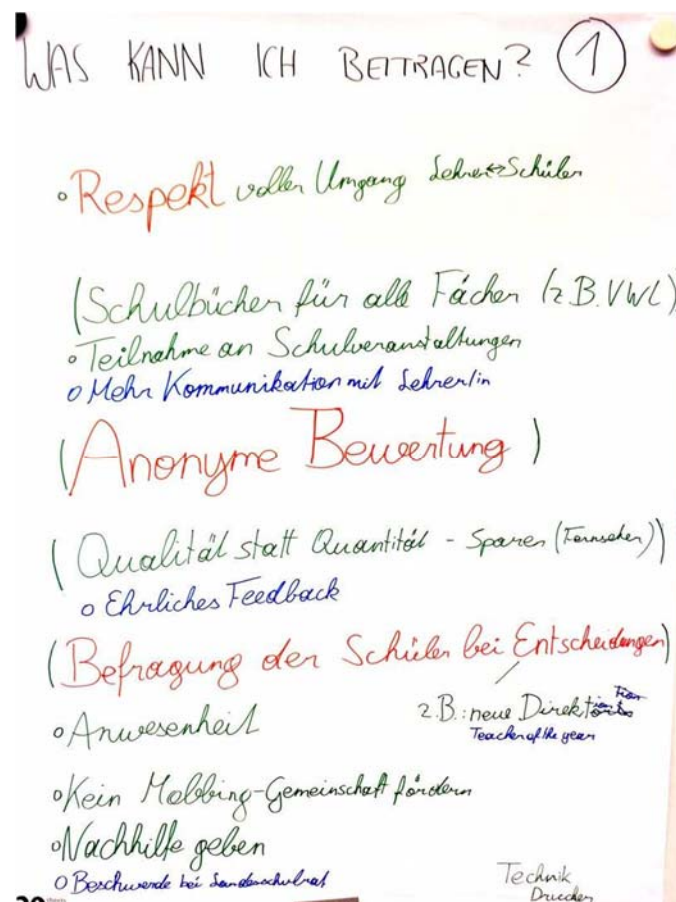 WAS KANN ICH BEITRAGEN? 1
Respektvoller Umgang Lehrer↔Schüler
(Schulbücher für alle Fächer (z.B. VWL)
Teilnahme an Schulveranstaltungen
Mehr Kommunikation mit Lehrer/in
(Anonyme Bewertung)
(Qualität statt Quantität - Sparen (Fernseher))
Ehrliches Feedback
(Befragung der Schüler bei Entscheidungen)
z.B.: neue Direktion
Teacher of the year
Anwesenheit
Kein Mobbing-Gemeinschaft fördern
Nachhilfe geben
Beschwerde bei Landesschulrat
Technik
Drucker